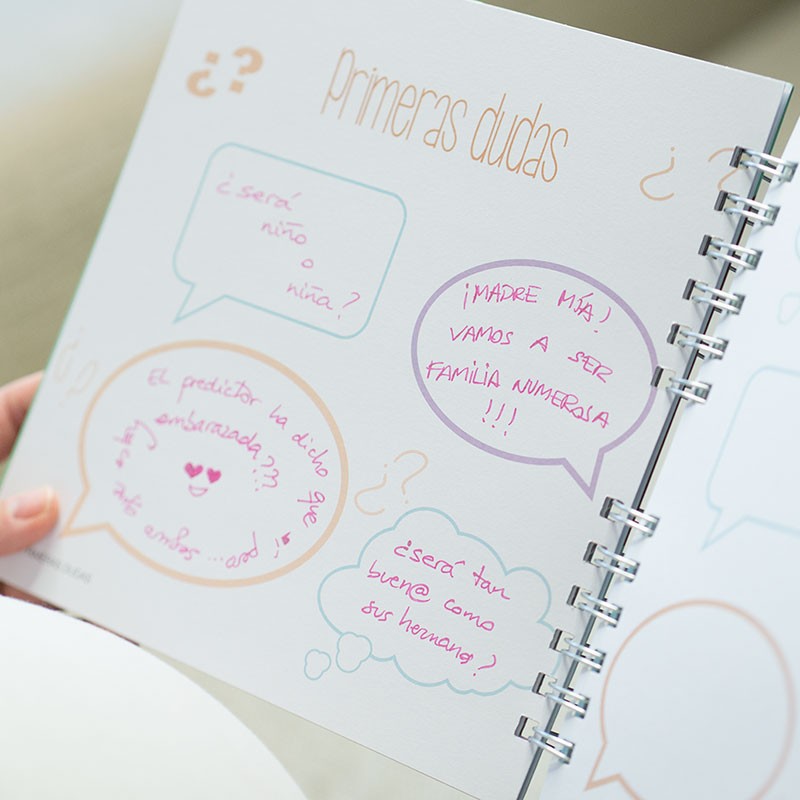 ¿?
Primeras dudas
¿ ?
¿será
niño
o
niña?
¡MADRE MÍA!
VAMOS A SER
FAMILIA NUMEROSA
!!!
¿?
El predictor ha dicho que sí pero... seguro
estoy
embarazada???
¿?
¿será tan
buen@ como
sus hermanos?